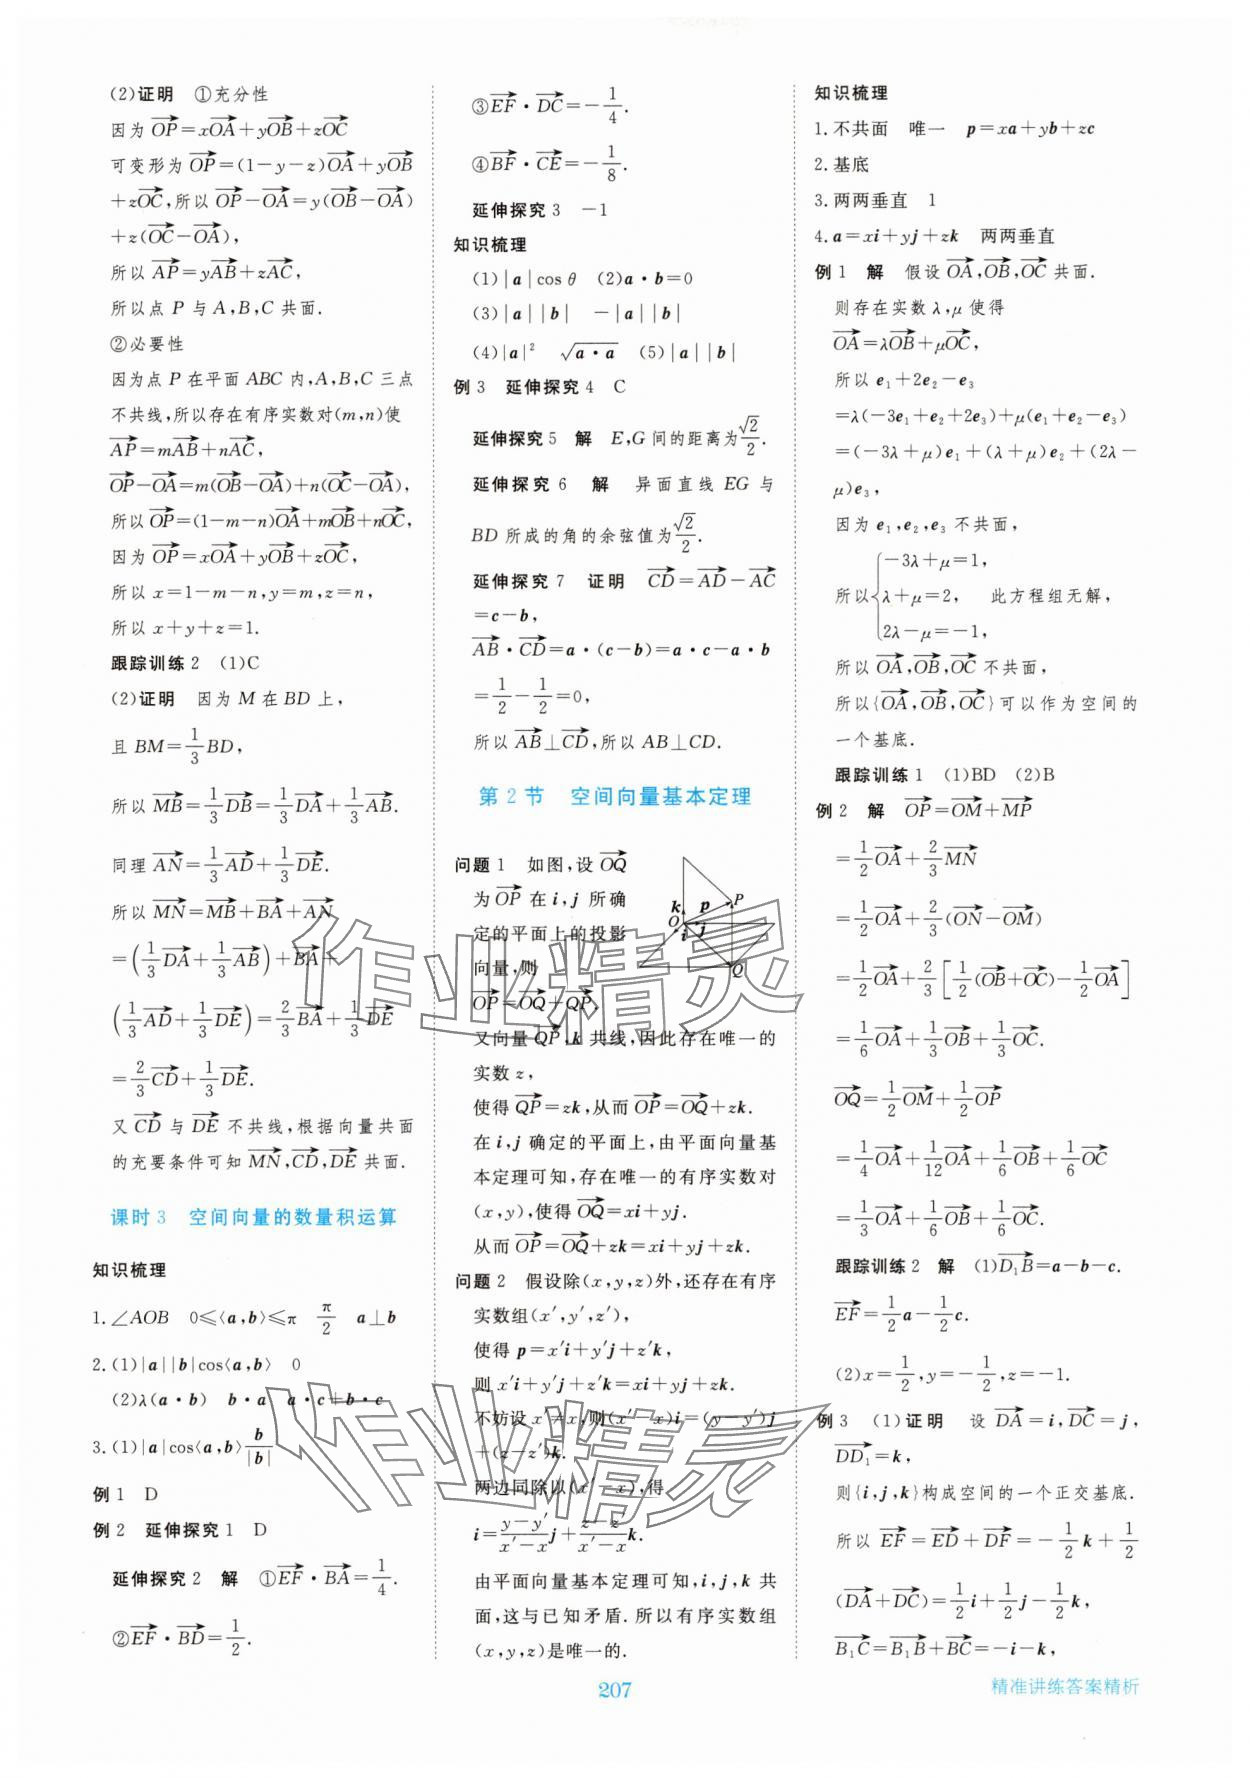 (2)证明 ①充分性
因为 $\overrightarrow{OP}=x\overrightarrow{OA}+y\overrightarrow{OB}+z\overrightarrow{OC}$
可变形为 $\overrightarrow{OP}=(1-y-z)\overrightarrow{OA}+y\overrightarrow{OB}$
$+z\overrightarrow{OC}$,所以 $\overrightarrow{OP}-\overrightarrow{OA}=y(\overrightarrow{OB}-\overrightarrow{OA})$
$+z(\overrightarrow{OC}-\overrightarrow{OA})$,
所以 $\overrightarrow{AP}=y\overrightarrow{AB}+z\overrightarrow{AC}$,
所以点 P 与 A,B,C 共面.
②必要性
因为点 P 在平面 ABC 内,A,B,C 三点
不共线,所以存在有序实数对(m,n)使
$\overrightarrow{AP}=m\overrightarrow{AB}+n\overrightarrow{AC}$,
$\overrightarrow{OP}-\overrightarrow{OA}=m(\overrightarrow{OB}-\overrightarrow{OA})+n(\overrightarrow{OC}-\overrightarrow{OA})$,
所以 $\overrightarrow{OP}=(1-m-n)\overrightarrow{OA}+m\overrightarrow{OB}+n\overrightarrow{OC}$,
因为 $\overrightarrow{OP}=x\overrightarrow{OA}+y\overrightarrow{OB}+z\overrightarrow{OC}$,
所以 x=1-m-n,y=m,z=n,
所以 x+y+z=1.
跟踪训练2 (1)C
(2)证明 因为 M 在 BD 上,
且 $BM=\frac{1}{3}BD$,
所以 $\overrightarrow{MB}=\frac{1}{3}\overrightarrow{DB}=\frac{1}{3}\overrightarrow{DA}+\frac{1}{3}\overrightarrow{AB}$.
同理 $\overrightarrow{AN}=\frac{1}{3}\overrightarrow{AD}+\frac{1}{3}\overrightarrow{DE}$.
所以 $\overrightarrow{MN}=\overrightarrow{MB}+\overrightarrow{BA}+\overrightarrow{AN}$
$=\left(\frac{1}{3}\overrightarrow{DA}+\frac{1}{3}\overrightarrow{AB}\right)+\overrightarrow{BA}+$
$\left(\frac{1}{3}\overrightarrow{AD}+\frac{1}{3}\overrightarrow{DE}\right)=\frac{2}{3}\overrightarrow{BA}+\frac{1}{3}\overrightarrow{DE}$
$=\frac{2}{3}\overrightarrow{CD}+\frac{1}{3}\overrightarrow{DE}$.
又 $\overrightarrow{CD}$ 与 $\overrightarrow{DE}$ 不共线,根据向量共面
的充要条件可知 $\overrightarrow{MN},\overrightarrow{CD},\overrightarrow{DE}$ 共面.
课时3 空间向量的数量积运算
知识梳理
1.∠AOB 0≤⟨a,b⟩≤π $\frac{\pi}{2}$ a⊥b
2.(1)|a||b|cos⟨a,b⟩ 0
(2)λ(a·b) b·a a·c+b·c
3.(1)|a|cos⟨a,b⟩$\frac{b}{|b|}$
例1 D
例2 延伸探究1 D
延伸探究2 解 ①$\overrightarrow{EF}\cdot\overrightarrow{BA}=\frac{1}{4}$.
②$\overrightarrow{EF}\cdot\overrightarrow{BD}=\frac{1}{2}$.
③$\overrightarrow{EF}\cdot\overrightarrow{DC}=-\frac{1}{4}$.
④$\overrightarrow{BF}\cdot\overrightarrow{CE}=-\frac{1}{8}$.
延伸探究3 -1
知识梳理
(1)|a|cos θ (2)a·b=0
(3)|a||b| -|a||b|
(4)|a|² $\sqrt{a\cdot a}$ (5)|a||b|
例3 延伸探究4 C
延伸探究5 解 E,G 间的距离为$\frac{\sqrt{2}}{2}$.
延伸探究6 解 异面直线 EG 与
BD 所成的角的余弦值为$\frac{\sqrt{2}}{2}$.
延伸探究7 证明 $\overrightarrow{CD}=\overrightarrow{AD}-\overrightarrow{AC}$
=c-b,
$\overrightarrow{AB}\cdot\overrightarrow{CD}$=a·(c-b)=a·c-a·b
$=\frac{1}{2}-\frac{1}{2}=0$,
所以 $\overrightarrow{AB}\perp\overrightarrow{CD}$,所以 AB⊥CD.
第2节 空间向量基本定理
问题1 如图,设 $\overrightarrow{OQ}$
为 $\overrightarrow{OP}$ 在 i,j 所确
定的平面上的投影
向量,则
$\overrightarrow{OP}=\overrightarrow{OQ}+\overrightarrow{QP}$,
k p P O i j Q
又向量 $\overrightarrow{QP}$,k 共线,因此存在唯一的
实数 z,
使得 $\overrightarrow{QP}=zk$,从而 $\overrightarrow{OP}=\overrightarrow{OQ}+zk$.
在 i,j 确定的平面上,由平面向量基
本定理可知,存在唯一的有序实数对
(x,y),使得 $\overrightarrow{OQ}=xi+yj$.
从而 $\overrightarrow{OP}=\overrightarrow{OQ}+zk=xi+yj+zk$.
问题2 假设除(x,y,z)外,还存在有序
实数组(x′,y′,z′),
使得 p=x′i+y′j+z′k,
则 x′i+y′j+z′k=xi+yj+zk.
不妨设 x′≠x,则(x′-x)i=(y-y′)j
+(z-z′)k.
两边同除以(x′-x),得
$i=\frac{y-y'}{x'-x}j+\frac{z-z'}{x'-x}k$.
由平面向量基本定理可知,i,j,k 共
面,这与已知矛盾.所以有序实数组
(x,y,z)是唯一的.
知识梳理
1.不共面 唯一 p=xa+yb+zc
2.基底
3.两两垂直 1
4.a=xi+yj+zk 两两垂直
例1 解 假设 $\overrightarrow{OA},\overrightarrow{OB},\overrightarrow{OC}$ 共面.
则存在实数 λ,μ 使得
$\overrightarrow{OA}=\lambda\overrightarrow{OB}+\mu\overrightarrow{OC}$,
所以 $e_1+2e_2-e_3$
$=\lambda(-3e_1+e_2+2e_3)+\mu(e_1+e_2-e_3)$
$=(-3\lambda+\mu)e_1+(\lambda+\mu)e_2+(2\lambda-$
$\mu)e_3$,
因为 $e_1,e_2,e_3$ 不共面,
所以$\begin{cases}-3\lambda+\mu=1,\\\lambda+\mu=2,\\2\lambda-\mu=-1,\end{cases}$ 此方程组无解,
所以 $\overrightarrow{OA},\overrightarrow{OB},\overrightarrow{OC}$ 不共面,
所以{$\overrightarrow{OA},\overrightarrow{OB},\overrightarrow{OC}$}可以作为空间的
一个基底.
跟踪训练1 (1)BD (2)B
例2 解 $\overrightarrow{OP}=\overrightarrow{OM}+\overrightarrow{MP}$
$=\frac{1}{2}\overrightarrow{OA}+\frac{2}{3}\overrightarrow{MN}$
$=\frac{1}{2}\overrightarrow{OA}+\frac{2}{3}(\overrightarrow{ON}-\overrightarrow{OM})$
$=\frac{1}{2}\overrightarrow{OA}+\frac{2}{3}\left[\frac{1}{2}(\overrightarrow{OB}+\overrightarrow{OC})-\frac{1}{2}\overrightarrow{OA}\right]$
$=\frac{1}{6}\overrightarrow{OA}+\frac{1}{3}\overrightarrow{OB}+\frac{1}{3}\overrightarrow{OC}$.
$\overrightarrow{OQ}=\frac{1}{2}\overrightarrow{OM}+\frac{1}{2}\overrightarrow{OP}$
$=\frac{1}{4}\overrightarrow{OA}+\frac{1}{12}\overrightarrow{OA}+\frac{1}{6}\overrightarrow{OB}+\frac{1}{6}\overrightarrow{OC}$
$=\frac{1}{3}\overrightarrow{OA}+\frac{1}{6}\overrightarrow{OB}+\frac{1}{6}\overrightarrow{OC}$.
跟踪训练2 解 (1)$\overrightarrow{D_1B}=a-b-c$.
$\overrightarrow{EF}=\frac{1}{2}a-\frac{1}{2}c$.
(2)$x=\frac{1}{2},y=-\frac{1}{2},z=-1$.
例3 (1)证明 设 $\overrightarrow{DA}=i,\overrightarrow{DC}=j$,
$\overrightarrow{DD_1}=k$,
则{i,j,k}构成空间的一个正交基底.
所以 $\overrightarrow{EF}=\overrightarrow{ED}+\overrightarrow{DF}=-\frac{1}{2}k+\frac{1}{2}$
$(\overrightarrow{DA}+\overrightarrow{DC})=\frac{1}{2}i+\frac{1}{2}j-\frac{1}{2}k$,
$\overrightarrow{B_1C}=\overrightarrow{B_1B}+\overrightarrow{BC}=-i-k$,
207
精准讲练答案精析
作业精灵
作业精灵